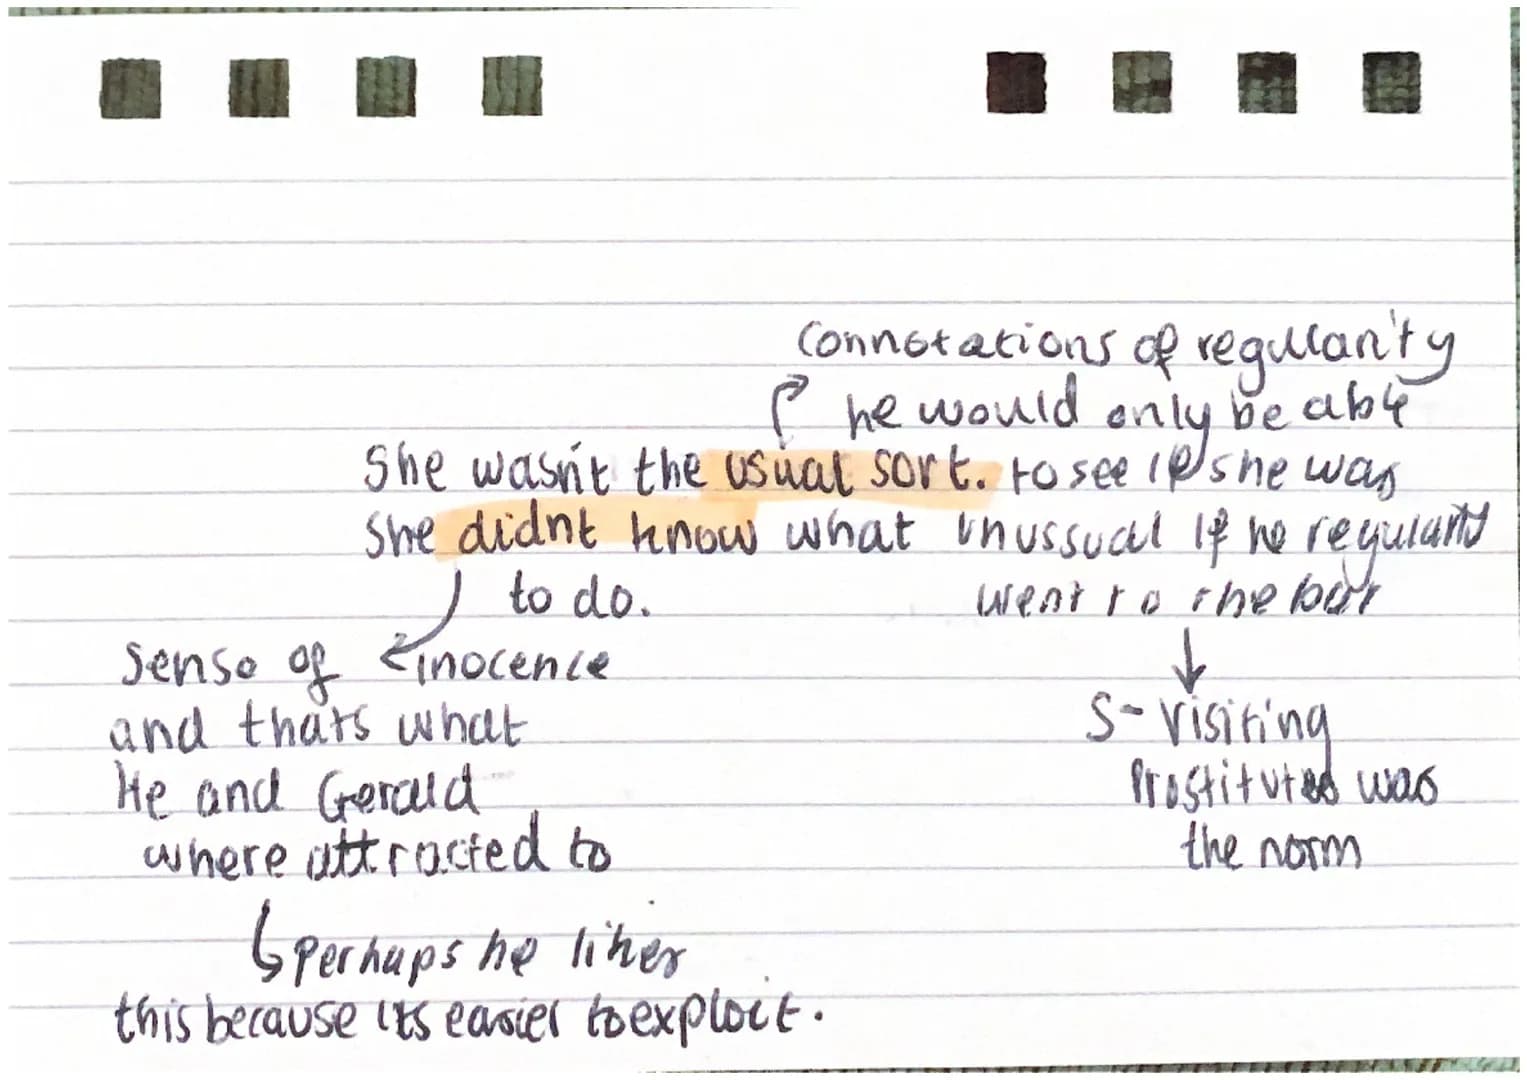 Connotations of regularity
he would only be able
She wasn't the usual sort. to see if she was
She didnt know what unussual if he regularly
to do. went to the bar
sense of inocence
and thats what
He and Gerald
where attracted to
S- Visiting
Prostitutes was
the norm
Perhaps he likes
this because its easier to exploit.